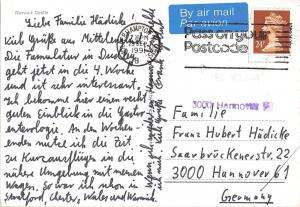 Warwick Castle
Liebe Familie Hädicke!
Viele Grüße aus Mittelengland.
Die Famulatur in Dudley
geht jetzt in die 4. Woche
und ist sehr interessant.
Ich bekomme hier einen recht
guten Einblick in die Gastro-
enterologie. An den Wochen-
enden nutze ich die Zeit
zu Kurzausflügen in die
nähere Umgebung mit meinem
Wagen. So war ich schon in
Stratford, Chester, Wales und Warwick.
By air mail
Par avion
Pass on your
Postcode
24
1991
3000 Hannover
Familie
Franz Hubert Hädicke
Saarbrückenerstr. 22
3000 Hannover 61
Germany